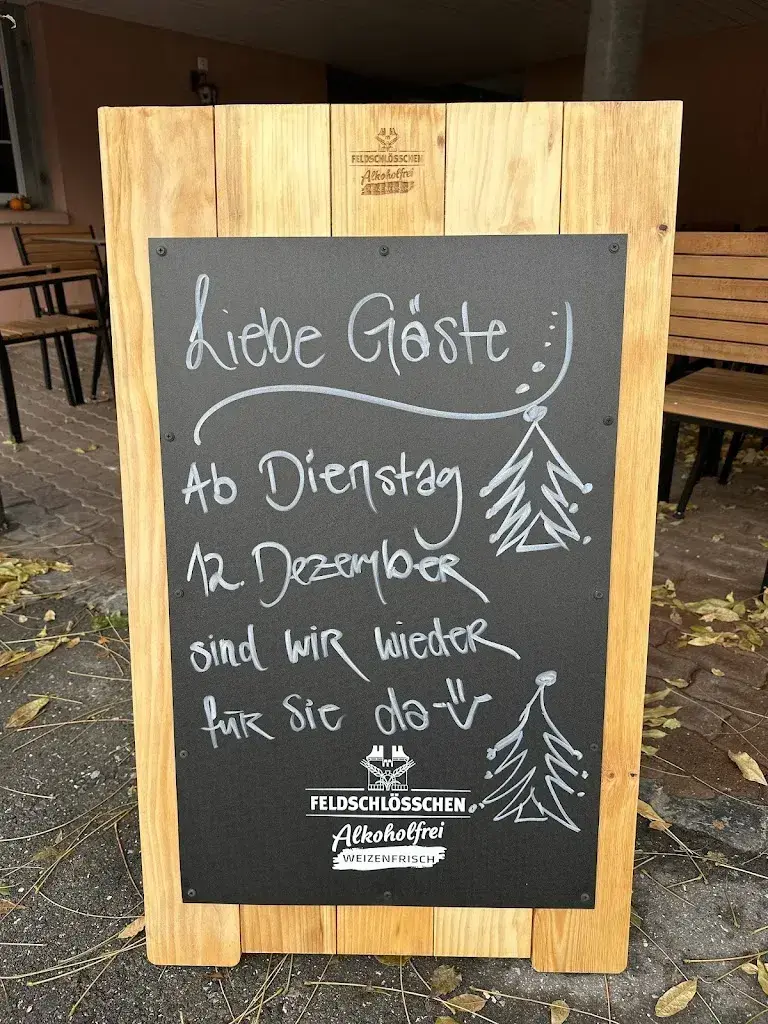 FELDSCHLÖSSCHEN
Alkoholfrei
Liebe Gäste
Ab Dienstag
12. Dezember
sind wir wieder
für Sie da
FELDSCHLÖSSCHEN
Alkoholfrei
WEIZENFRISCH